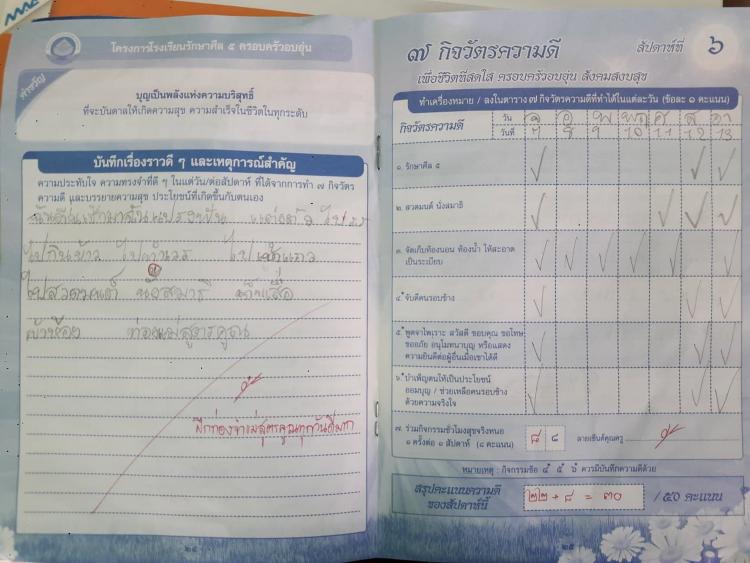 โครงการโรงเรียนรักษาศีล ๕ ครอบครัวอบอุ่น
คำขวัญ
บุญเป็นพลังแห่งความบริสุทธิ์
ที่จะบันดาลให้เกิดความสุข ความสำเร็จในชีวิตในทุกระดับ
บันทึกเรื่องราวดี ๆ และเหตุการณ์สำคัญ
ความประทับใจ ความทรงจำที่ดี ๆ ในแต่วัน/ต่อสัปดาห์ ที่ได้จากการทำ ๗ กิจวัตร
ความดี และบรรยายความสุข ประโยชน์ที่เกิดขึ้นกับตนเอง
ไปกินข้าว ไปทำเวร ไปเข้าแถว
ไปสวดมนต์ นั่งสมาธิ
เข้าห้อง ท่องแม่สูตรคูณ
ฝึกท่องจำแม่สูตรคูณทุกวันดีมาก
๒๔
๗ กิจวัตรความดี
สัปดาห์ที่ ๖
เพื่อชีวิตที่สดใส ครอบครัวอบอุ่น สังคมสงบสุข
ทำเครื่องหมาย / ลงในตาราง ๗ กิจวัตรความดีที่ทำได้ในแต่ละวัน (ข้อละ ๑ คะแนน)
กิจวัตรความดี
วัน จ อ พ พฤ ศ ส อา
วันที่ 7 8 9 10 11 12 13
๑. รักษาศีล ๕
๒. สวดมนต์ นั่งสมาธิ
๓. จัดเก็บห้องนอน ห้องน้ำ ให้สะอาด
เป็นระเบียบ
๔. จับดีคนรอบข้าง
๕. พูดจาไพเราะ สวัสดี ขอบคุณ ขอโทษ
ขออภัย อนุโมทนาบุญ หรือแสดง
ความยินดีต่อผู้อื่นเมื่อเขาได้ดี
๖. บำเพ็ญตนให้เป็นประโยชน์
ออมบุญ / ช่วยเหลือคนรอบข้าง
ด้วยความจริงใจ
๗. ร่วมกิจกรรมชั่วโมงสุขจริงหนอ
๑ ครั้งต่อ ๑ สัปดาห์ (๘ คะแนน)
๘ ๘
ลายเซ็นต์คุณครู
หมายเหตุ : กิจกรรมข้อ ๔ ๕ ๖ ควรมีบันทึกความดีด้วย
สรุปคะแนนความดี
ของสัปดาห์นี้
๒๒ + ๘ = ๓๐ / ๕๐ คะแนน
๒๕